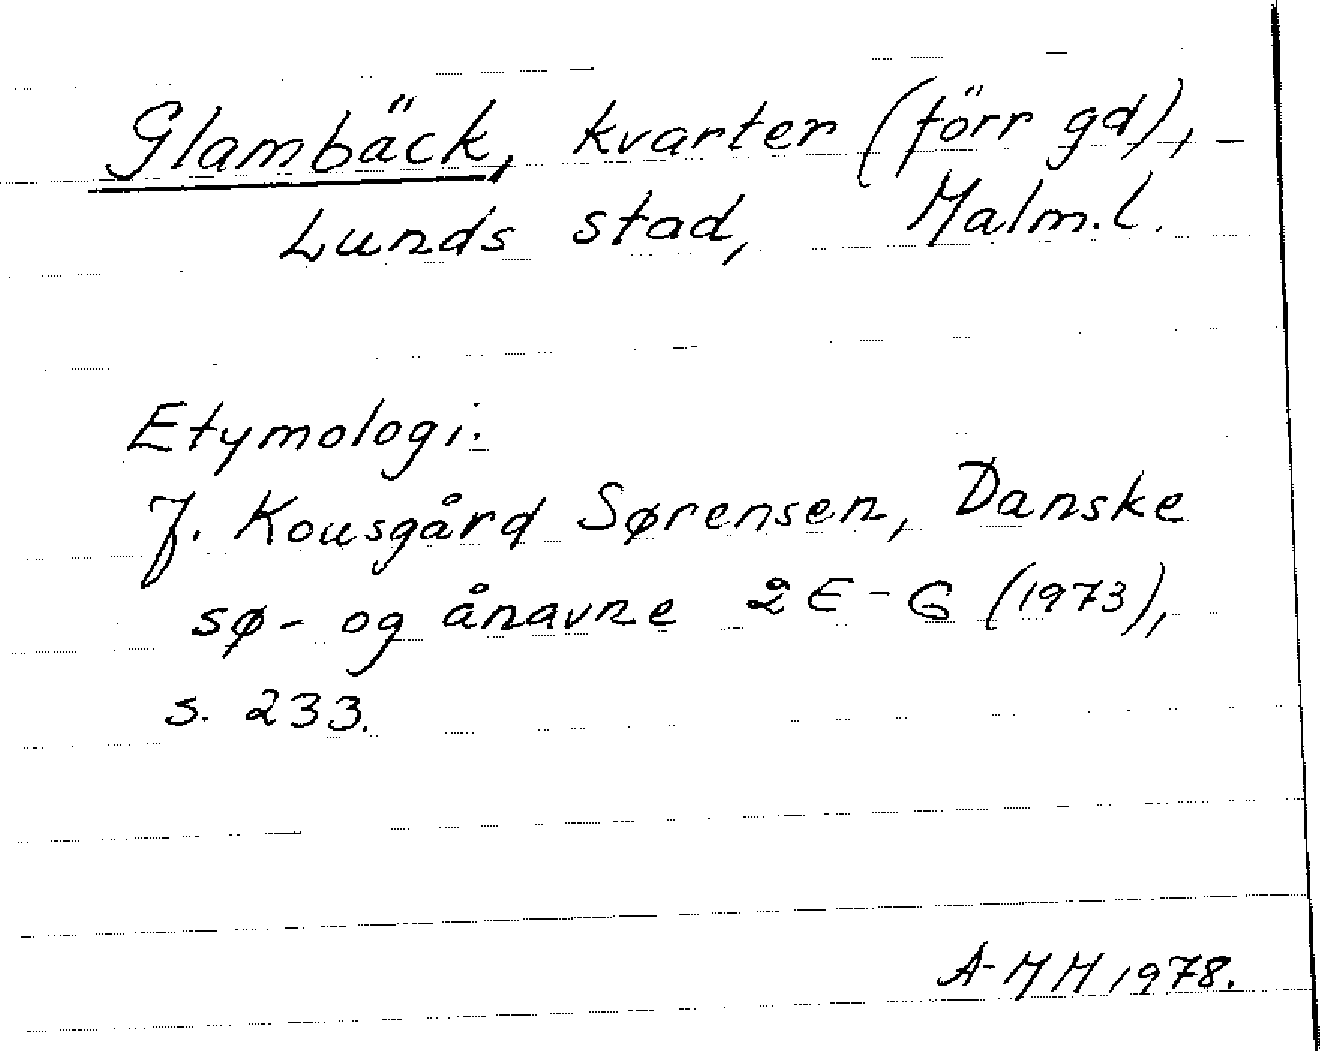 Glambäck, kvarter (förr gd), -
Lunds stad, Malm.l.
Etymologi:
J. Kousgård Sørensen, Danske
sø- og ånavne 2 E-G (1973),
s. 233.
A-MH 1978.